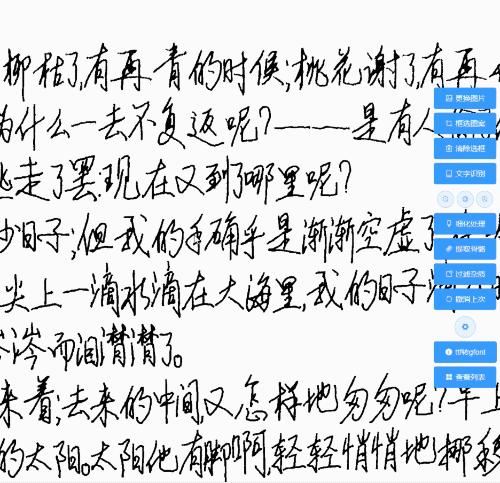 柳枯了,有再青的时候;桃花谢了,有再
为什么一去不复返呢?——是有人
逃走了罢:现在又到了哪里呢?
少日子;但我的手确乎是渐渐空虚了
尖上一滴水滴在大海里,我的日子滴
涔涔而泪潸潸了。
来着;去来的中间,又怎样地匆匆呢?早上
的太阳。太阳他有脚啊,轻轻悄悄地挪移
更换图片
框选图案
清除选框
文字识别
细化处理
提取骨骼
过滤杂质
撤消上次
ttf转gfont
查看列表